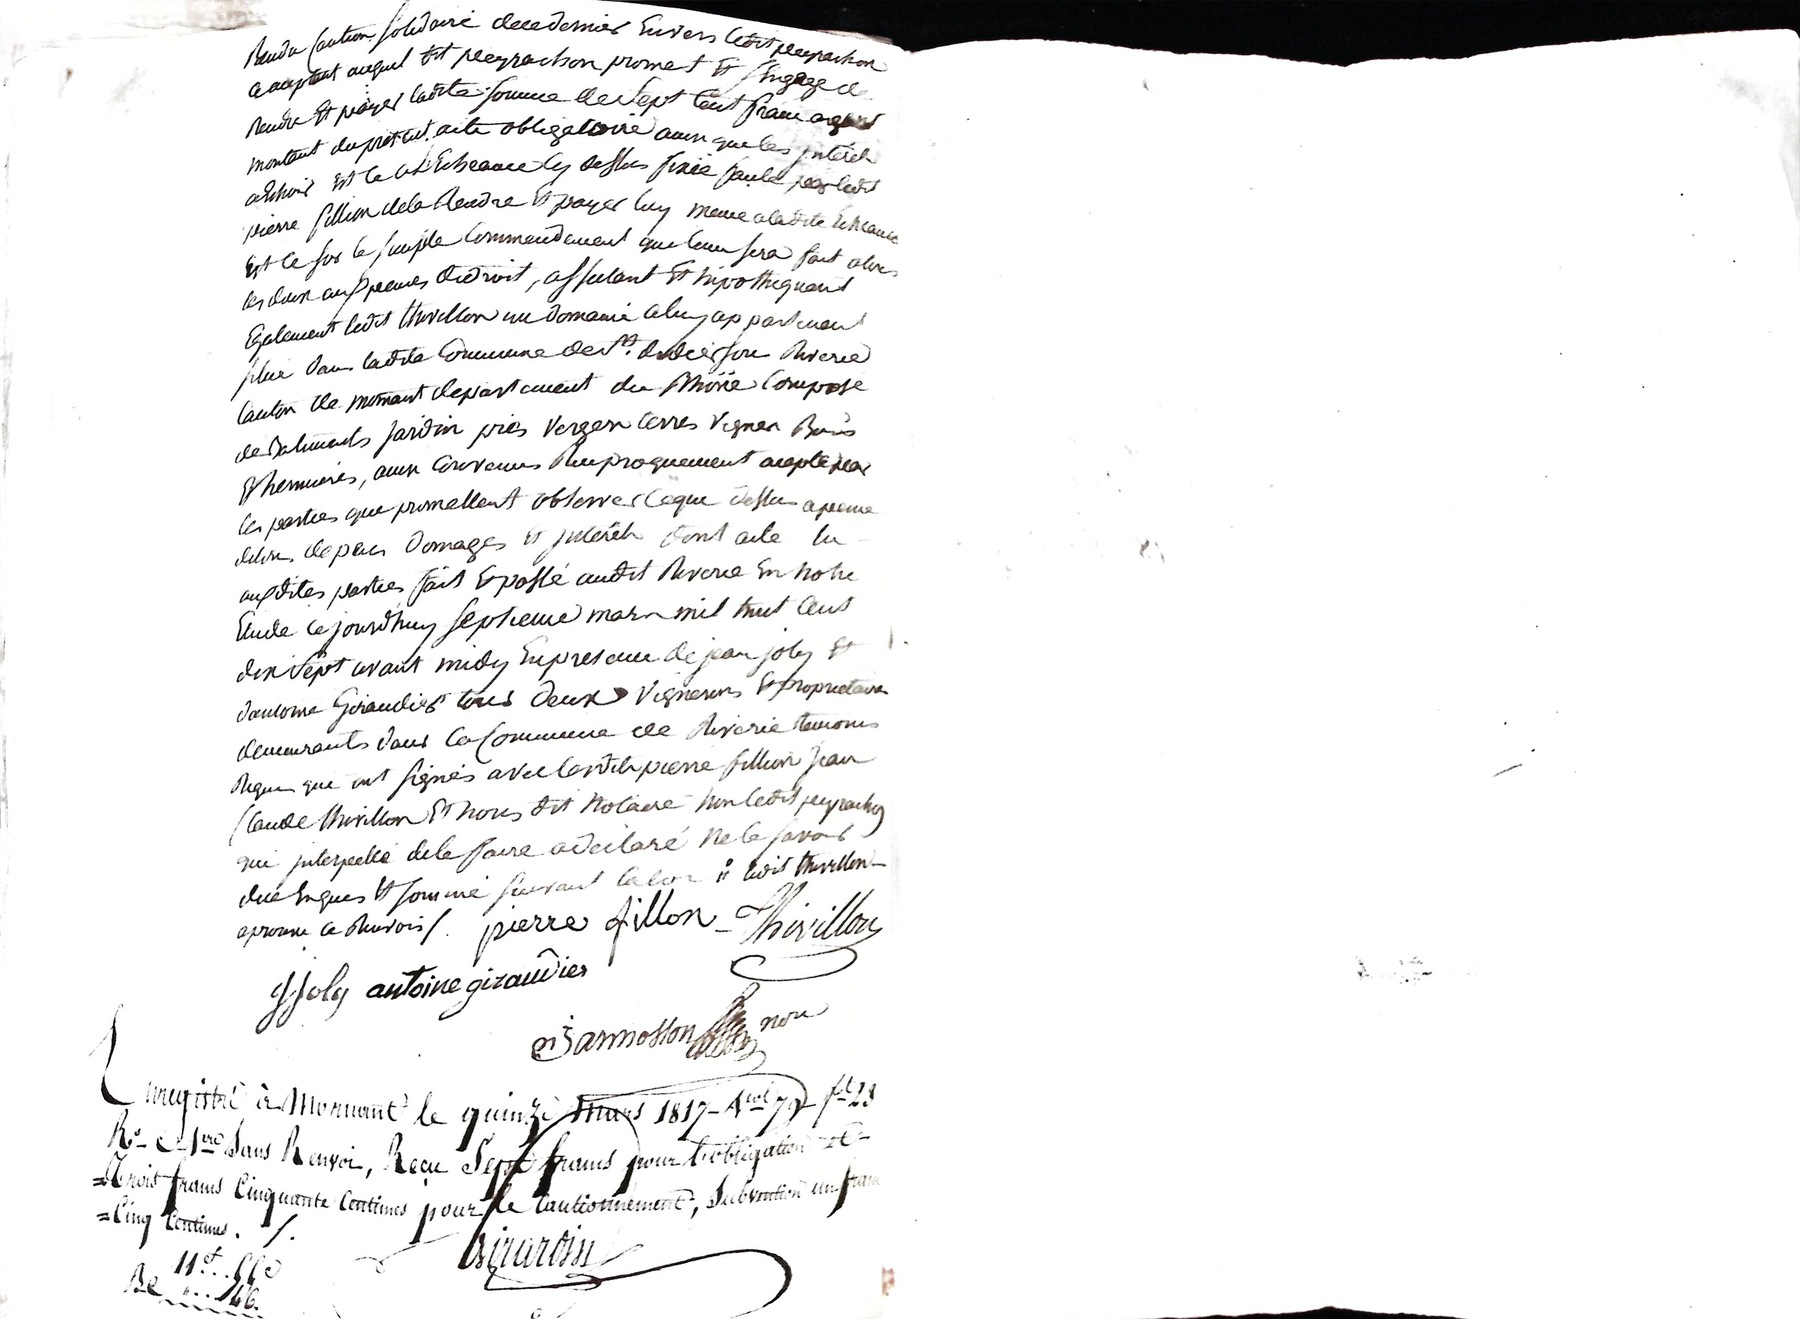 Rendu Caution solidaire de ce dernier Envers ledit peyrachon
aceptant auquel dit peyrachon promet Et s'Engage de
Rendre Et payer ladite somme de sept Cent francs argent
montant du présent acte obligatoire ainsi que les Interêts
a Echoir Est ce a L'Echeance cy dessus fixée faute par ledit
pierre fillion de la Rendre Et payer luy meme a ladite Echeance
Est ce sur le simple Commendement que leur sera fait alors
les deux aux peines de droit, affectant Et hipothequant
Egalement ledit thivillon un domaine a luy appartenant
situé dans ladite Commune de St. didier sou Riverie
Canton de mornant departement du Rhône Composé
de Batiments Jardin près vergers terres vignes Bois
Et hermieres, ainsi Convenus Reciproquement acepté par
les parties que promettent observer ce que dessus a peine
de tous depens domages Et Interêts dont acte lu
auxdites parties fait Et passé audit Riverie En notre
Etude ce jourd'huy septieme mars mil huit Cent
dix sept avant midy En presence de jean joly Et
d'antoine Giraudier tous deux vignerons Et proprietaires
demeurants dans la Commune de Riverie temoins
Requis que ont signés avec lesdits pierre fillion Jean
Claude thivillon Et nous dit Notaire non ledit peyrachon
qui interpellé de le faire a déclaré ne le savoir
de ce Enquis Et sommé suivant la loi ledit thivillon
aprouve ce Renvois /. pierre fillon Thivillon
J Joly antoine giraudier
Barmosson nore
Enregistré à Mornant le quinze Mars 1817 – Art 79 fo 23
Ro C 1re Sans Renvoi, Recu Sept francs pour l'obligation et
=Trois francs Cinquante Centimes pour le Cautionnement, Subvention un franc
=Cinq Centimes. /.
Girardin
11f.. 55c